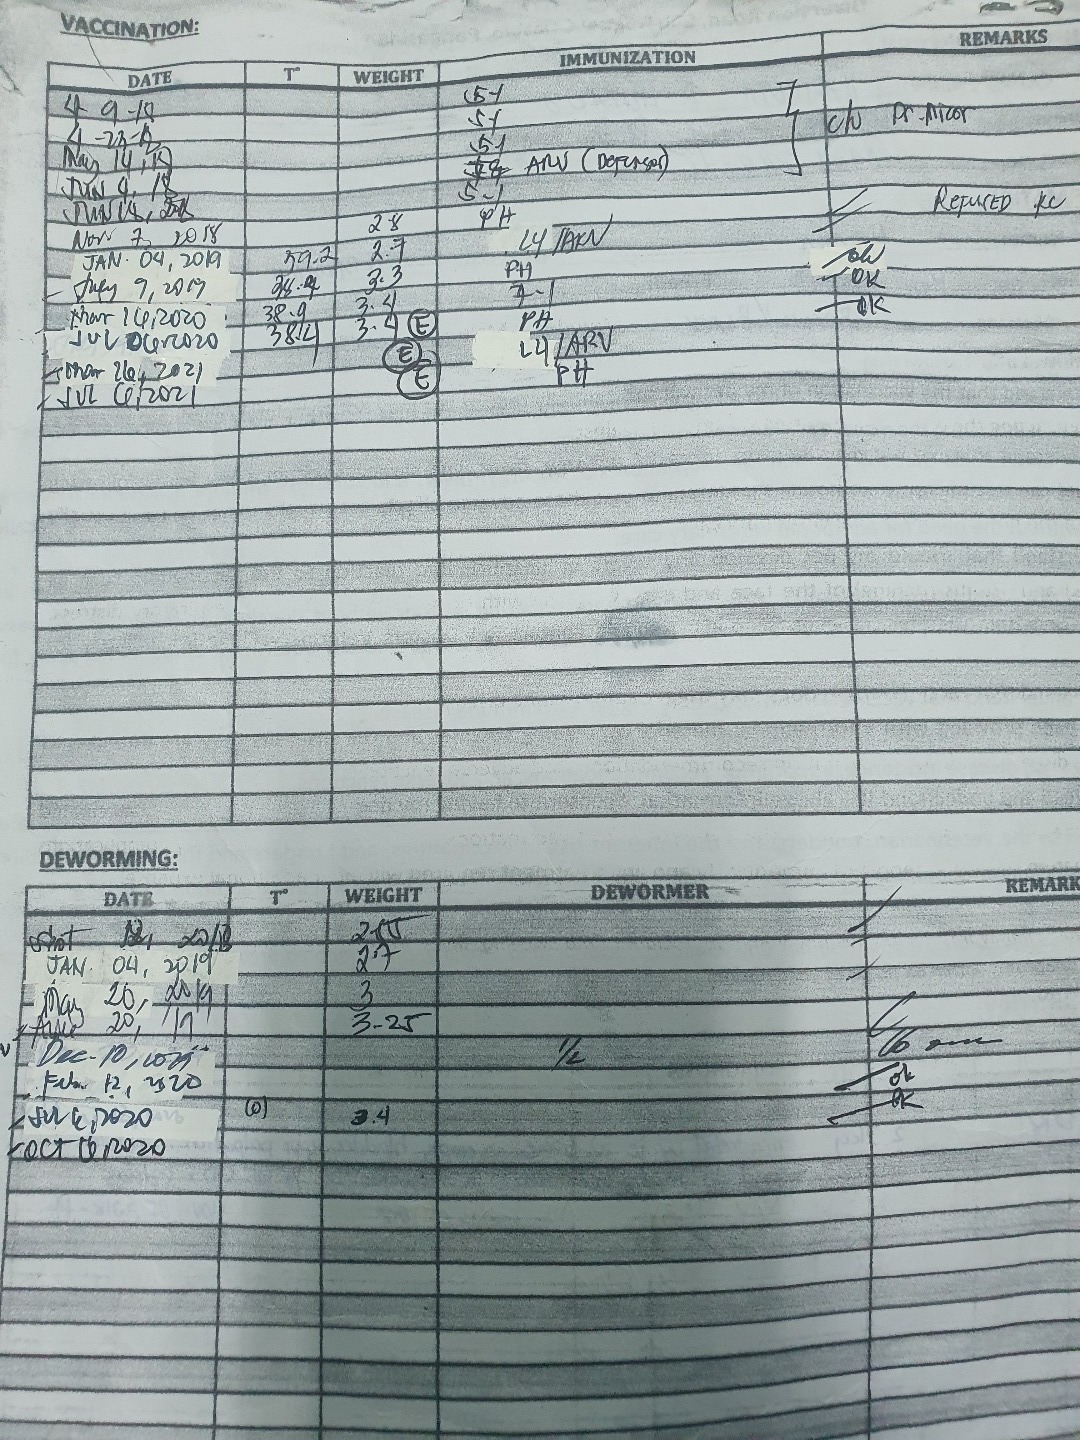 VACCINATION:
DATE T° WEIGHT IMMUNIZATION REMARKS
4-9-18 5-1
4-23-18 5-1 c/o Dr.
May 14, 18 5-1
JUN 4, 18 ARV (Defensor)
JUN 18, 5-1
Nov 7, 2018 2.8 PH REFUSED KC
JAN. 04, 2019 39.2 2.7 L4/ARV
July 9, 2019 3.3 PH OK
Mar 16, 2020 38.9 3.4 OK
JUL 06, 2020 38.4 3.4 E PH
Mar 26, 2021 E L4/ARV
JUL 6, 2021 E PH
DEWORMING:
DATE T° WEIGHT DEWORMER REMARK
2018
JAN. 04, 2019 2.7
May 20, 2019 3
20, 19 3-25
Dec. 10, 2019 1/2
Feb. 12, 2020 OK
JUL 6, 2020 (0) 3.4 OK
OCT 6, 2020